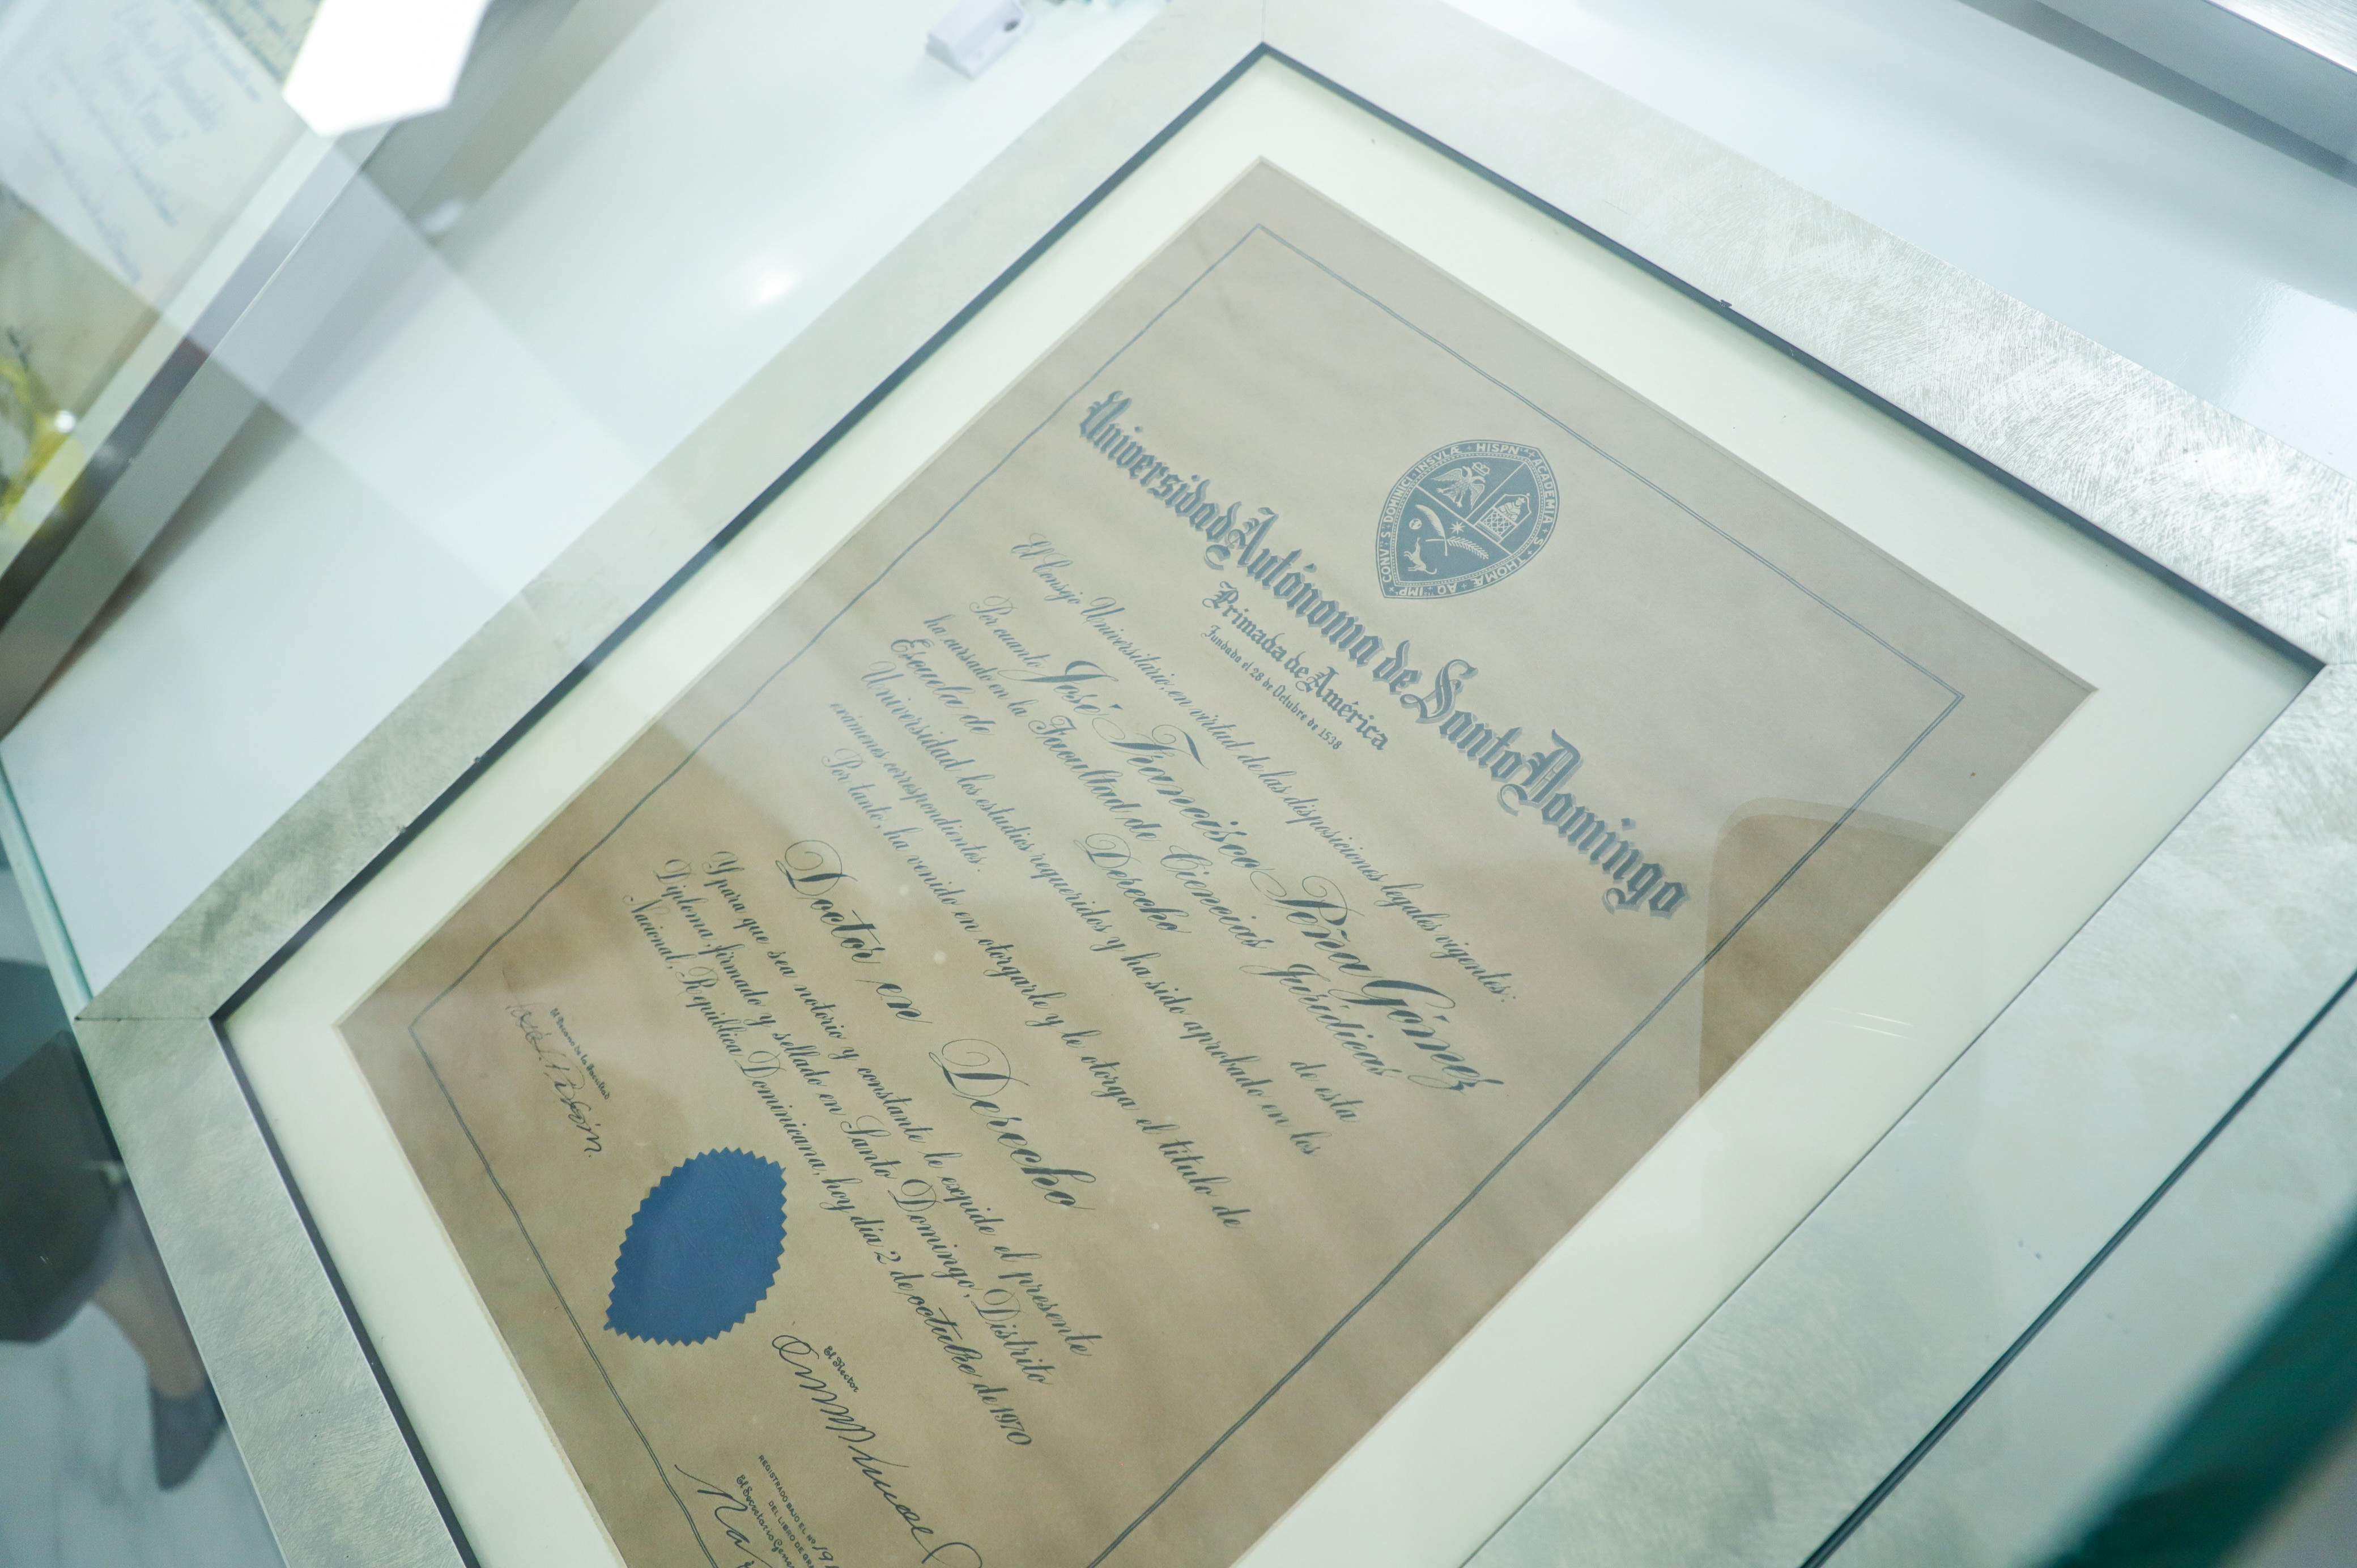 CONV · S · DOMINICI · INSVLÆ · HISPN · ACADEMIA · S · THOMÆ · AQ · IMP
Universidad Autónoma de Santo Domingo
Primada de América
Fundada el 28 de Octubre de 1538
El Consejo Universitario, en virtud de las disposiciones legales vigentes:
Por cuanto José Francisco Peña Gómez
ha cursado en la Facultad de Ciencias Jurídicas
Escuela de Derecho de esta
Universidad los estudios requeridos y ha sido aprobado en los
exámenes correspondientes.
Por tanto, ha venido en otorgarle y le otorga el título de
Doctor en Derecho
Y para que sea notorio y constante le expide el presente
Diploma, firmado y sellado en Santo Domingo, Distrito
Nacional, República Dominicana, hoy día 2 de octubre de 1970
El Decano de la Facultad
El Rector
REGISTRADO BAJO EL Nº
DEL LIBRO DE
El Secretario